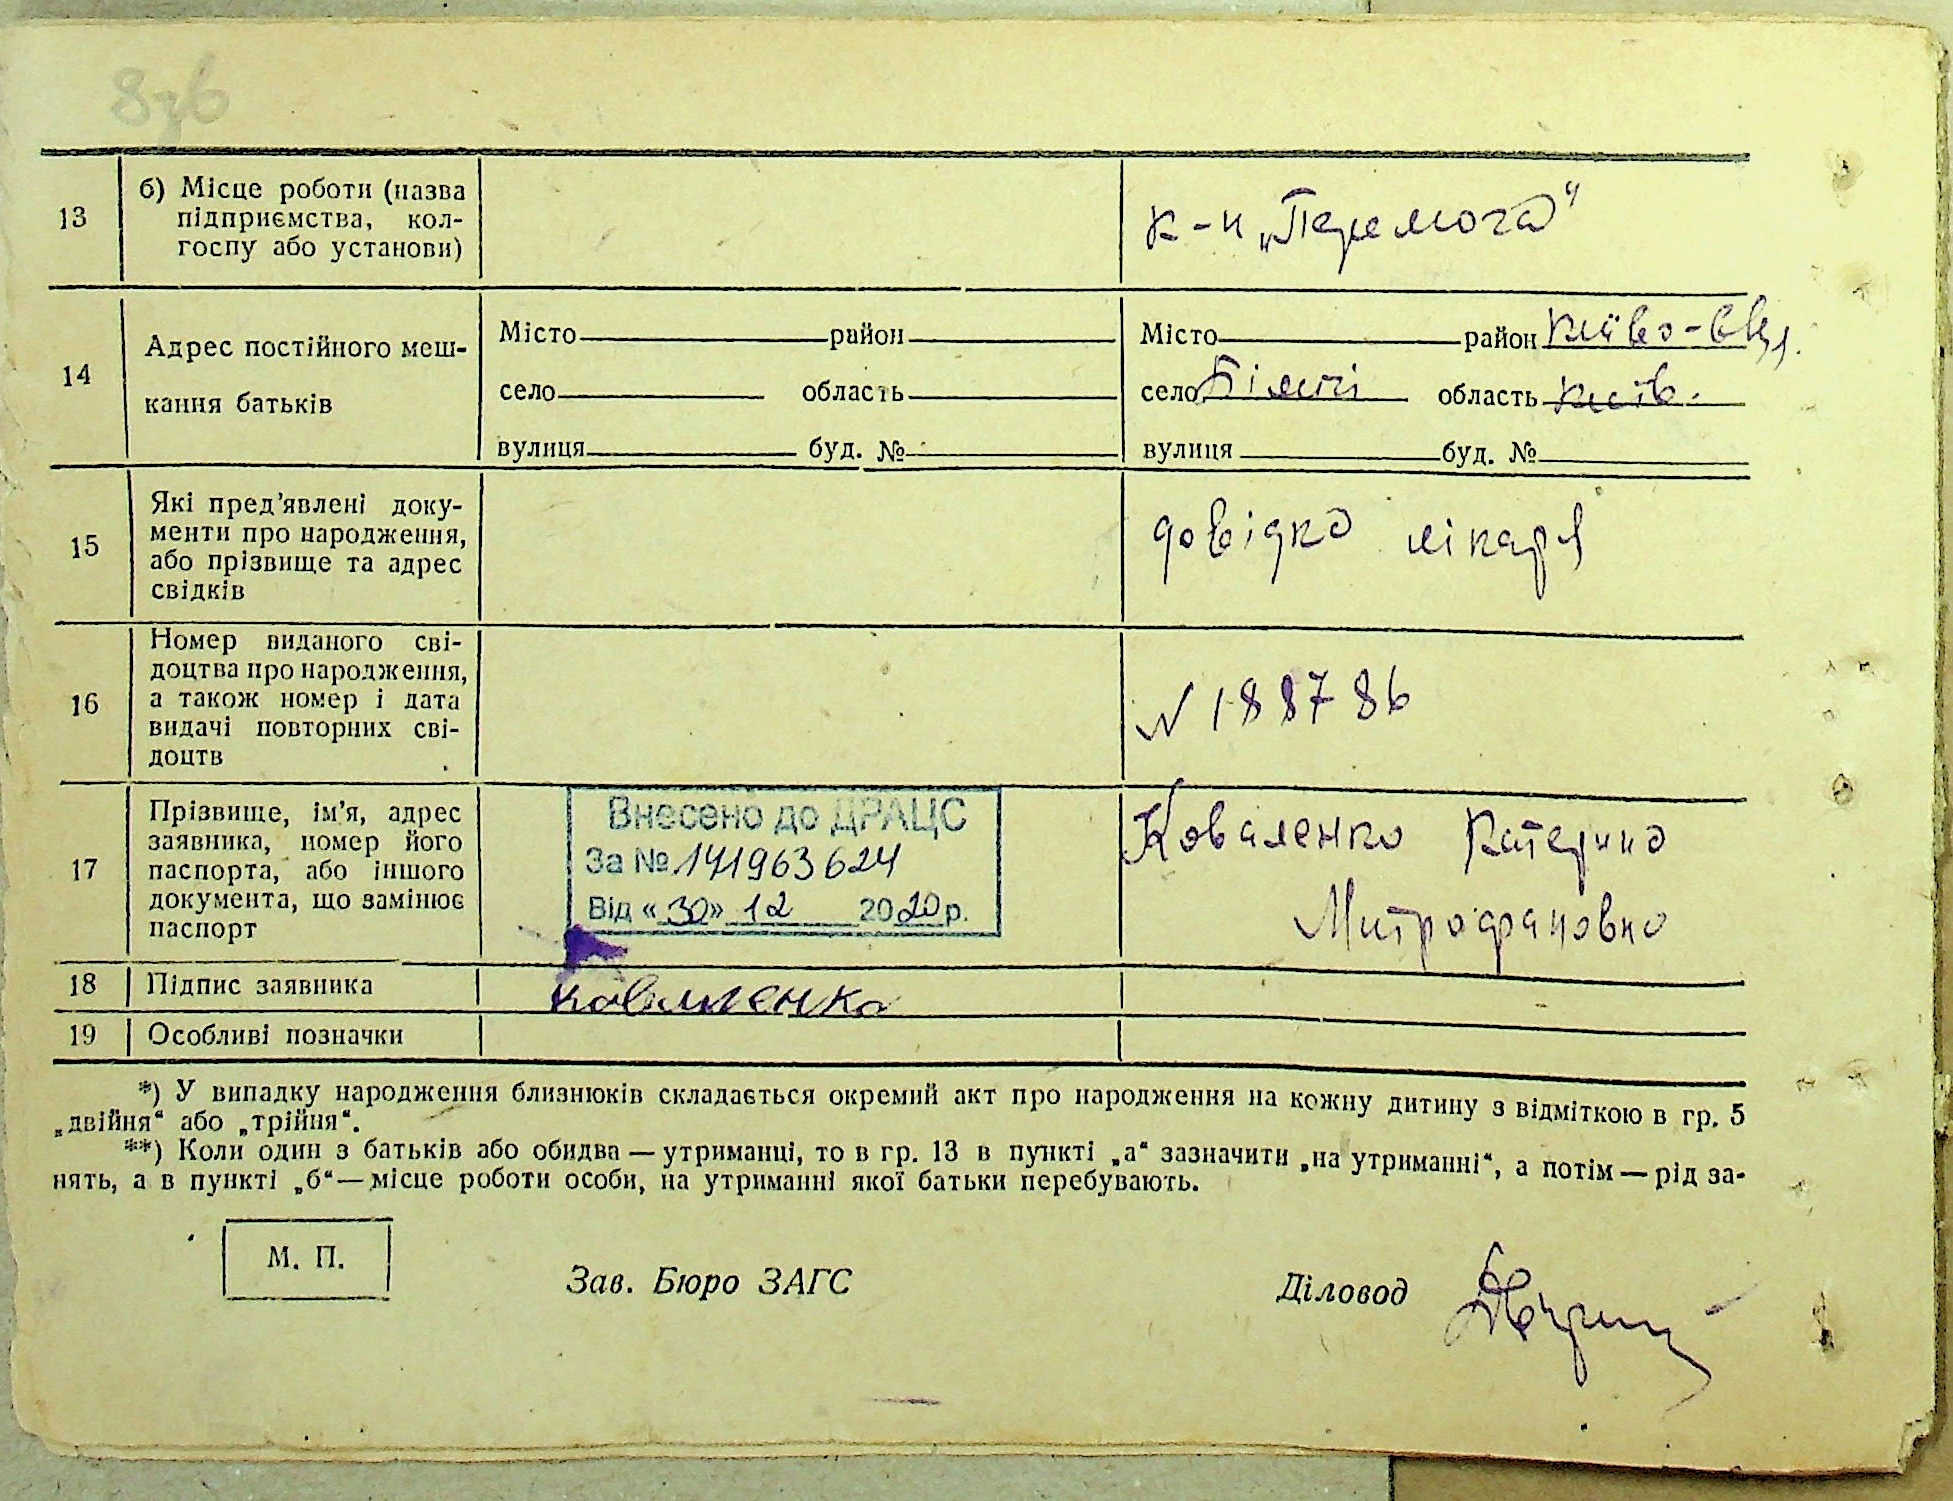 8зв
13 б) Місце роботи (назва
підприємства, кол-
госпу або установи)
к-п „Перемога"
14 Адрес постійного меш-
кання батьків
Місто район
село область
вулиця буд. №
Місто район Києво-Св.
село Біличі область Київ.
вулиця буд. №
15 Які пред'явлені доку-
менти про народження,
або прізвище та адрес
свідків
довідка лікаря
16 Номер виданого сві-
доцтва про народження,
а також номер і дата
видачі повторних сві-
доцтв
N 188786
17 Прізвище, ім'я, адрес
заявника, номер його
паспорта, або іншого
документа, що замінює
паспорт
Внесено до ДРАЦС
За № 141963624
Від «30» 12 2020 р.
Коваленко Катерина
Митрофановна
18 Підпис заявника Коваленко
19 Особливі позначки
*) У випадку народження близнюків складається окремий акт про народження на кожну дитину з відміткою в гр. 5
„двійня" або „трійня".
**) Коли один з батьків або обидва — утриманці, то в гр. 13 в пункті „а" зазначити „на утриманні", а потім — рід за-
нять, а в пункті „б" — місце роботи особи, на утриманні якої батьки перебувають.
М. П.
Зав. Бюро ЗАГС
Діловод